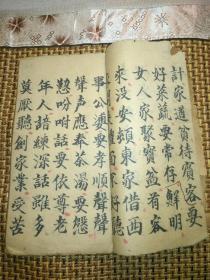 計家道貧待賓客要
好茶蔬要常存鮮明
女人家聚寳盆有客
來没安頓東家借西
事公婆要孝順聲聲
聲聲應奉茶湯要慇
懃吩咐話要依尊老
年人語練深話雖多
莫厭聽創家業受苦